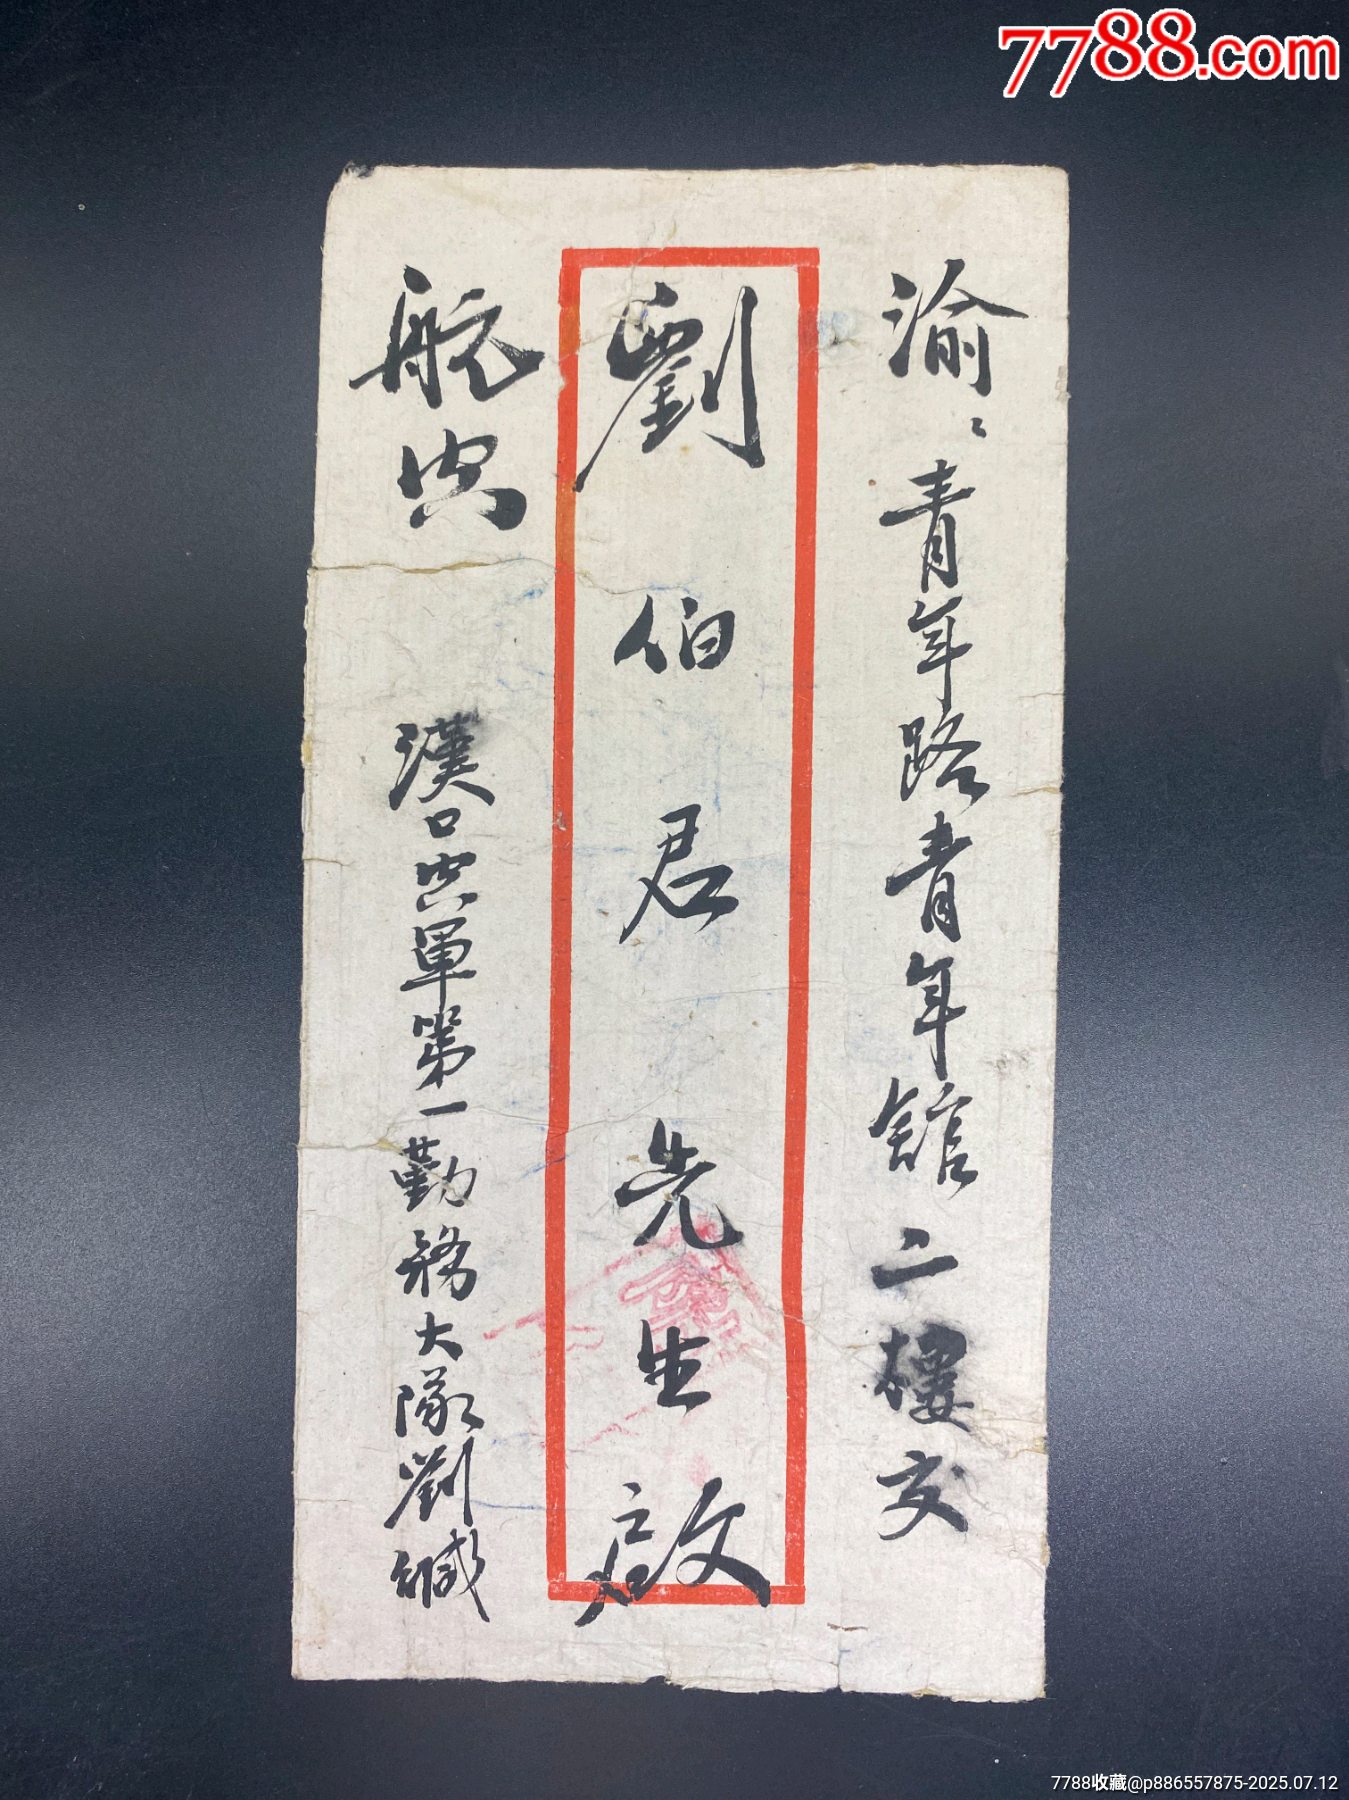 7788.com
渝：青年路青年館二樓交
劉伯君先生啟
航空
漢口空軍第一勤務大隊劉緘
7788收藏@p886557875-2025.07.12